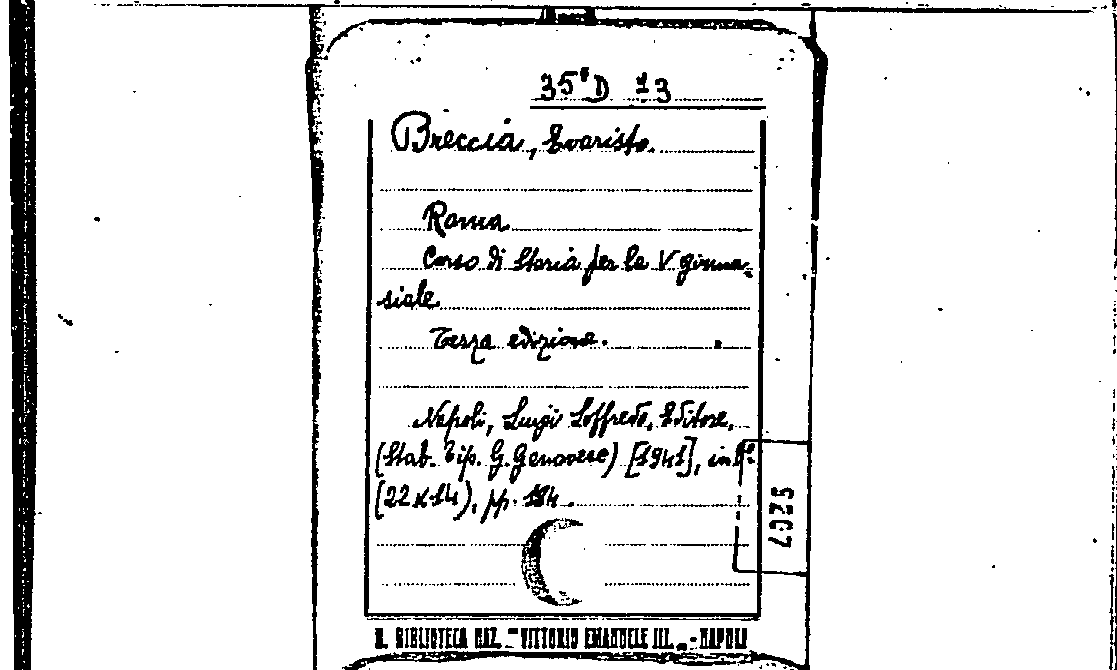 35ª D 13
Breccia, Evaristo.
Roma
Corso di Storia per la V ginna-
siale
Terza edizione.
Napoli, Luigi Loffredo, Editore,
(Stab. Tip. G. Genovese) [1941], in 8º
(22 x 14), pp. 184.
5207
R. BIBLIOTECA NAZ. "VITTORIO EMANUELE III." - NAPOLI